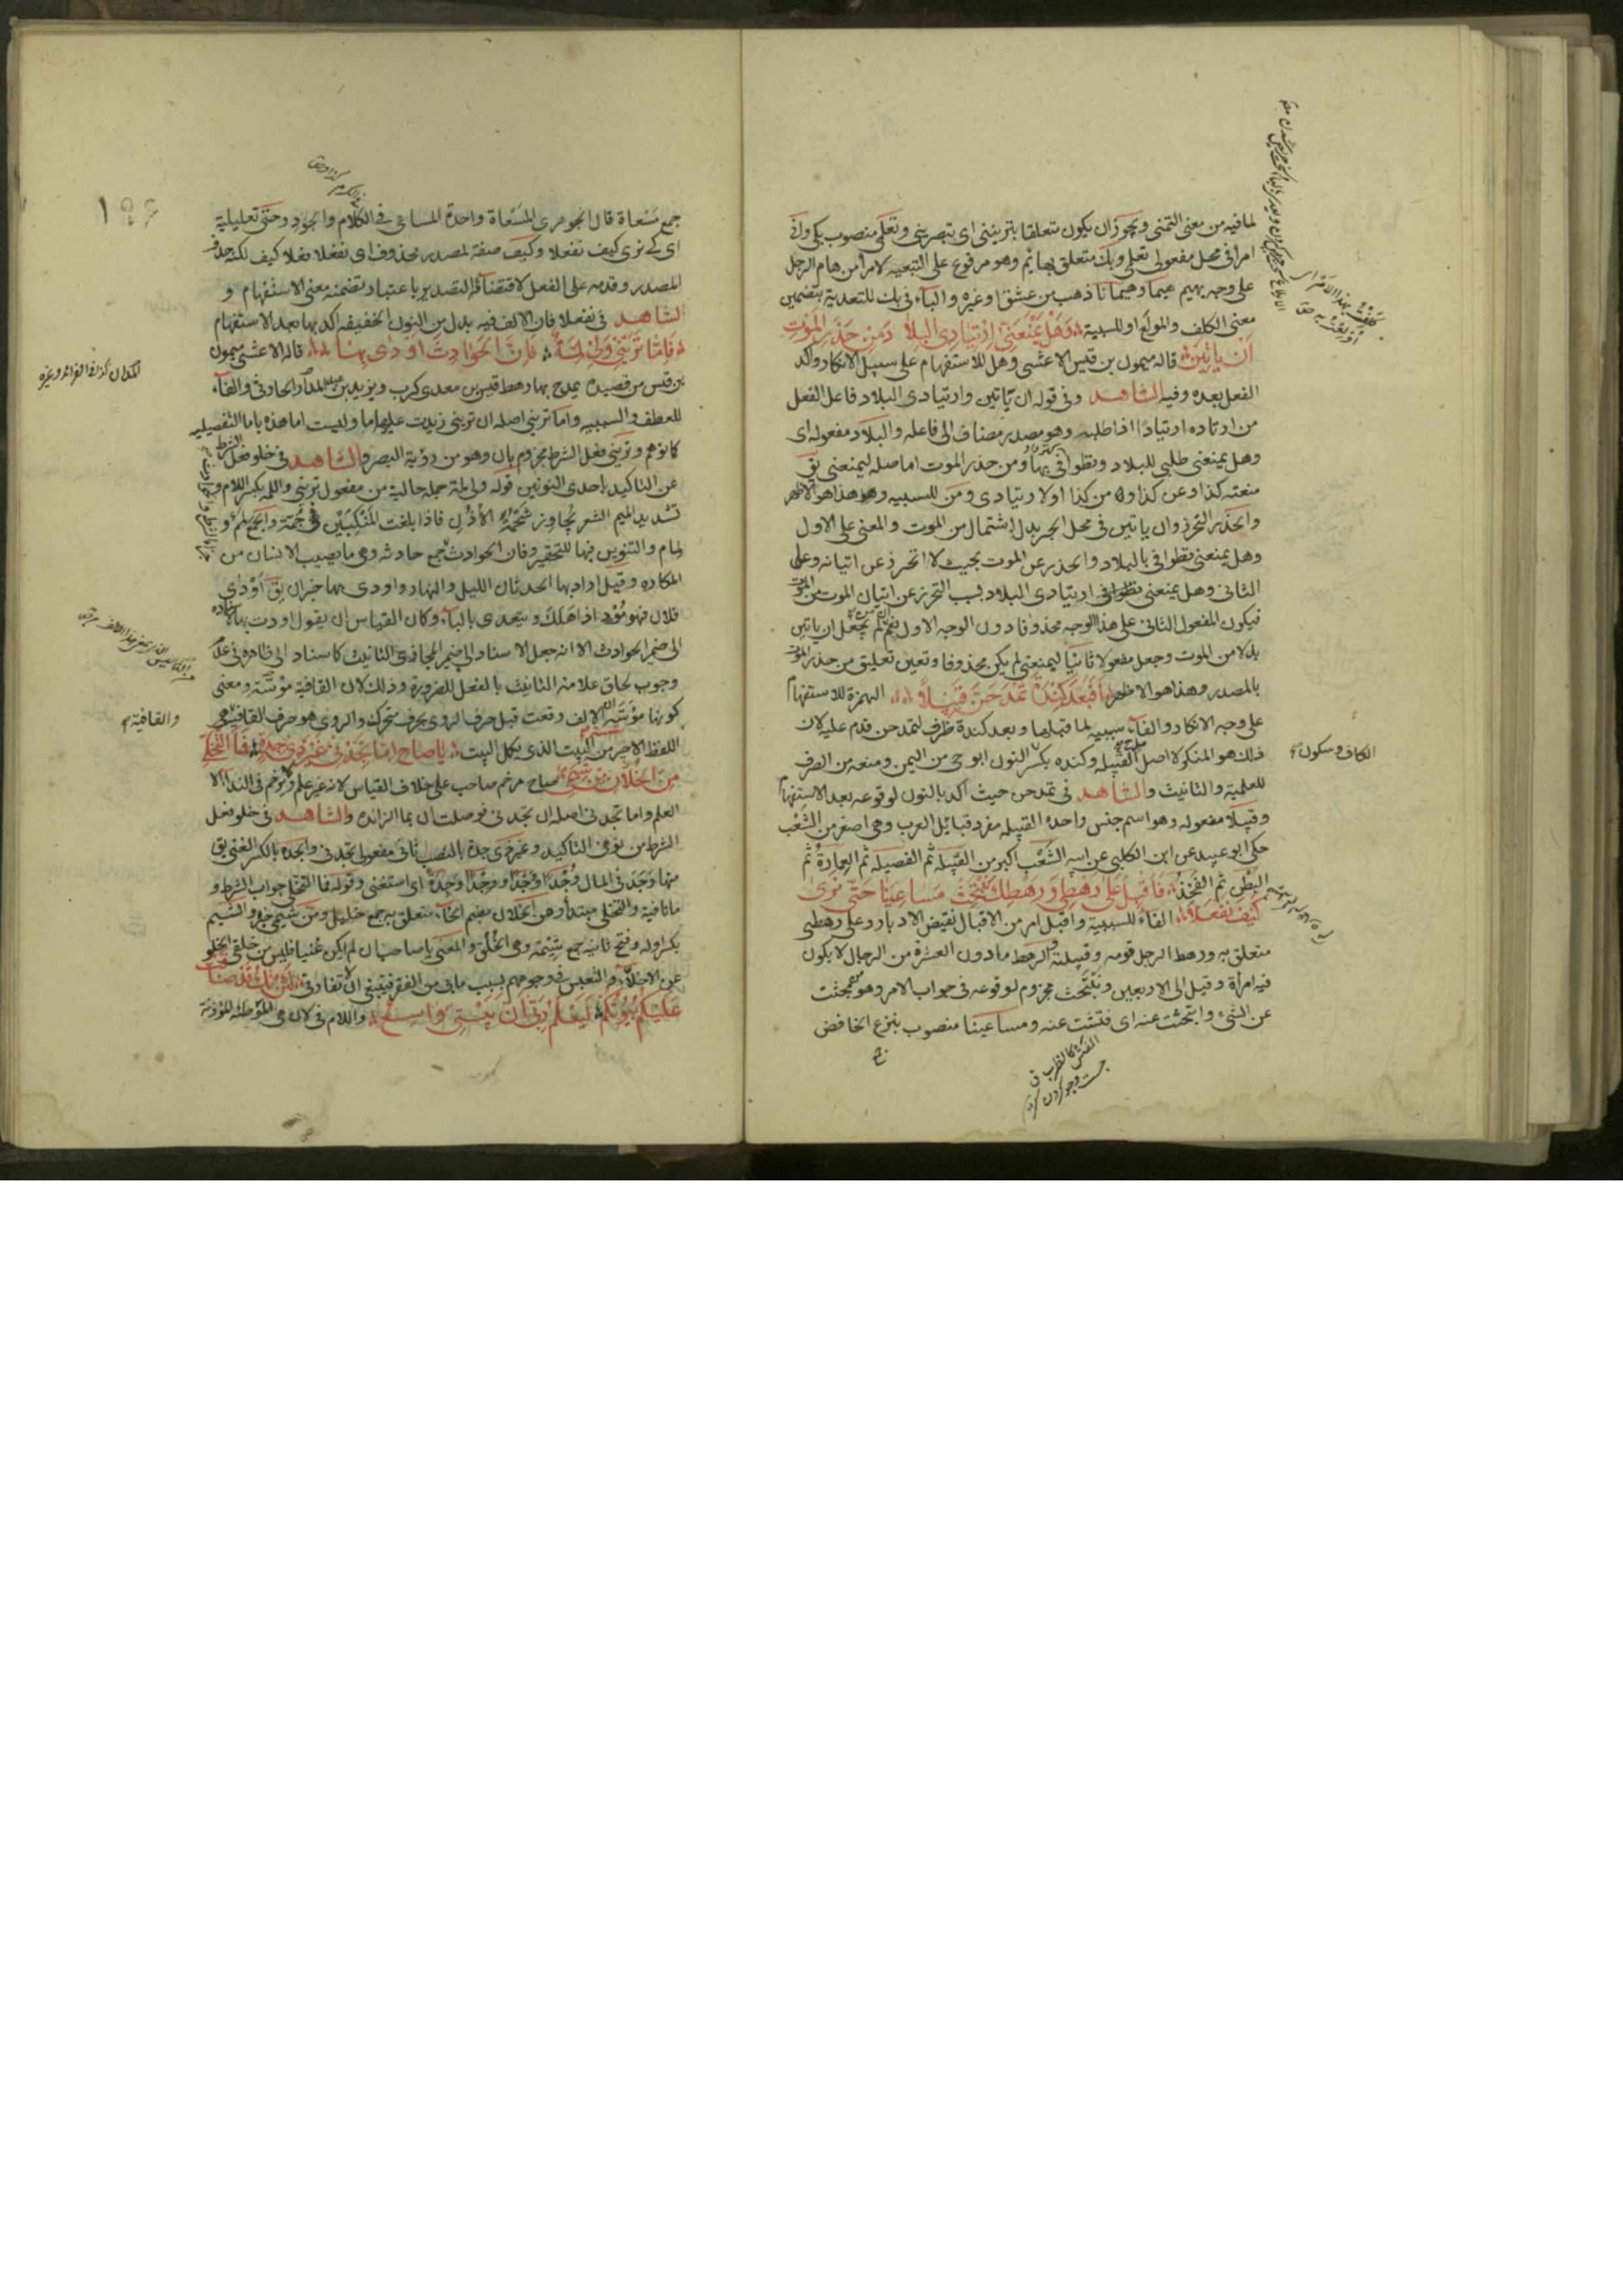 لما فيه من معنى التمنى ويجوز ان يكون متعلقا بترينى اى تبصرينى وتعلمى منصوب بكى وان
امرا فى محل مفعولى تعلمى وبك متعلق بهائم وهو مرفوع على التبعية لامرا من هام الرجل
على وجهه يهيم هيما وهيمانا ذهب من عشق او غيره والباء فى بك للتعدية بتضمين
معنى الكلف والمولع او للسببية وَهَلْ يَمْنَعَنِّى اِرْتِيَادِى البِلَادَ مِنْ حَذَرِ المَوْتِ
اَنْ يَاتِيَنْ قاله ميمون بن قيس الاعشى وهل للاستفهام على سبيل الانكار واكد
الفعل بعده وفيه الشاهد وفى قوله ان ياتين وارتيادى البلاد فاعل الفعل
من ارتاده ارتيادا اذا طلبه وهو مصدر مضاف الى فاعله والبلاد مفعوله اى
وهل يمنعنى طلبى للبلاد وتطوافى بها ومن حذر الموت اما صلة ليمنعنى يق
منعته كذا وعن كذا ومن كذا اولا رتيادى ومن للسببيه وهذا هو الاظهر
والحذر التحرز وان ياتين فى محل الجر بدل اشتمال من الموت والمعنى على الاول
وهل يمنعنى تطوافى بالبلاد والحذر عن الموت بحيث لا اتحرز عن اتيانه وعلى
الثانى وهل يمنعنى تطوافى ارتيادى البلاد بسبب التحرز عن اتيان الموت من الموت
فيكون المفعول الثانى على هذا الوجه محذوفا دون الوجه الاول نعم ان لم يجعل ان ياتين
بدلا من الموت وجعل مفعولا ثانيا ليمنعنى لم يكن محذوفا وتعين تعليق من حذر الموت
بالمصدر وهذا هو الاظهر اَفَبَعْدَ كِنْدَةَ تَمْدَحَنَّ قَبِيْلًا الهمزة للاستفهام
على وجه الانكار والفاء سببيه لما قبلها وبعد كندة ظرف لتمدحن قدم عليه لان
ذلك هو المنكر لا اصل القبيله وكنده بكسر النون ابو حى من اليمن ومنعه من الصرف
للعلمية والتانيث والشاهد فى تمدحن حيث اكد بالنون لوقوعه بعد الاستفهام
وقبيلا مفعوله وهو اسم جنس واحده القبيله مفرد قبائل العرب وهى اصغر من الشَعْب
حكى ابو عبيد عن ابن الكلبى عن ابيه الشَعْب اكبر من القبيله ثم الفصيله ثم العمارة ثم
البطن ثم الفخذ فَاَقْبِلْ عَلٰى رَهْطِى وَرَهْطِكَ نَبْتَحِثْ مَسَاعِيَنَا حَتّٰى تَرٰى
كَيْفَ نَفْعَلَا الفاء للسببية واقبل امر من الاقبال نقيض الادبار وعلى رهطى
متعلق به ورهط الرجل قومه وقبيلته والرهط مادون العشرة من الرجال لا يكون
فيه امرأة وقيل الى الاربعين ونبتحث مجزوم لوقوعه فى جواب الامر وهو من بحثت
عن الشئ وابتحثت عنه اى فتشت عنه ومساعينا منصوب بنزع الخافض
الكاف وسكون
جمع مَسْعاة قال الجوهرى المَسْعاة واحدة المساعى فى الكلام والجود وحتى تعليلية
اى كى ترى كيف نفعلا وكيف صفة لمصدر محذوف اى نفعلا فعلا كيف لكنه حذف
المصدر وقدم على الفعل لاقتضائه التصدير باعتبار تضمنه معنى الاستفهام و
الشاهد فى نفعلا فان الالف فيه بدل من النون الخفيفه اكد بها بعد الاستفهام
فَاِمَّا تَرَيْنِى وَلِى لِمَّةٌ فَاِنَّ الحَوَادِثَ اَوْدٰى بِهَا قاله الاعشى ميمون
بن قيس من قصيده يمدح بها رهط قيس بن معدى كرب ويزيد بن عبد المدار الحارثى والفاء
للعطف والسببيه واما ترينى اصله ان ترينى زيدت عليها ما وليست اما هذه باما التفصيليه
كا توهم وترينى فعل الشرط مجزوم بان وهو من رؤية البصر والشاهد فى خلو فعل الشرط
عن التاكيد باحدى النونين قوله ولى لمة جمله حالية من مفعول ترينى واللمه بكسر اللام و
تشديد الميم الشعر يجاوز شحمة الأذن فاذا بلغت المنكبين فهى جُمَّة والجمع لمم و
لمام والتنوين فيها للتحقير وفان الحوادث جمع حادثه وهى ما يصيب الانسان من
المكاره وقيل اراد بها الحدثان الليل والنهار واودى بها خبر ان يق اَوْدٰى
فلان فهو مُوْدٍ اذا هَلَكَ ويتعدى بالباء وكان القياس ان يقول اودت بها
الى ضمير الحوادث الا انه جعل الاسناد الى ضمير المجازى التانيث كاسناد الى ظاهره فى عدم
وجوب لحاق علامة التانيث بالفعل للضرورة وذلك لان القافية مؤسَّسة ومعنى
كونها مؤسَّسة ان الالف وقعت قبل حرف الروى بحرف متحرك والروى هو حرف القافية وهى
اللفظ الاخير من البيت الذى يكمل البيت يَا صَاحِ اِمَّا تَجِدْنِى غَيْرَ ذِى جِدَةٍ فَمَا التَّخَلِّى
مِنَ الخُلَّانِ مِنْ شِيَمِى صاح مرخم صاحب على خلاف القياس لانه غير علم ولا يرخم فى النداء الا
العلم واما تجدنى اصله ان تجدنى فوصلت ان بما الزائده والشاهد فى خلو فعل
الشرط من نونى التاكيد وغير ذى جدة بالنصب ثانى مفعولى تجدنى والجده بالكسر الغنى يق
منها وَجَدَ فى المال وُجْدًا وَجْدًا ووِجْدًا وجِدَةً اى استغنى وقوله فما التخلى جواب الشرط و
ما نافية والتخلى مبتدأ وهن الخلان بضم الخاء متعلق به جمع خليل ومن شيمى خبره والشيم
بكسر اوله وفتح ثانيه جمع شِيْمَة وهى الخُلُق والمعنى يا صاحب ان لم اكن غنيا فليس من خلقى الخلو
عن الاخلاء والتعبس فى وجوههم بسبب مابى من الفقر فينبغى ان لا تفارقنى لَئِنْ تَكُ قَدْ ضَاقَتْ
عَلَيْكُمْ بُيُوْتُكُمْ لَيَعْلَمُ رَبِّى اَنَّ بَيْتِىَ وَاسِعٌ واللام فى لان هى الموطئه المؤذنة
والقافية